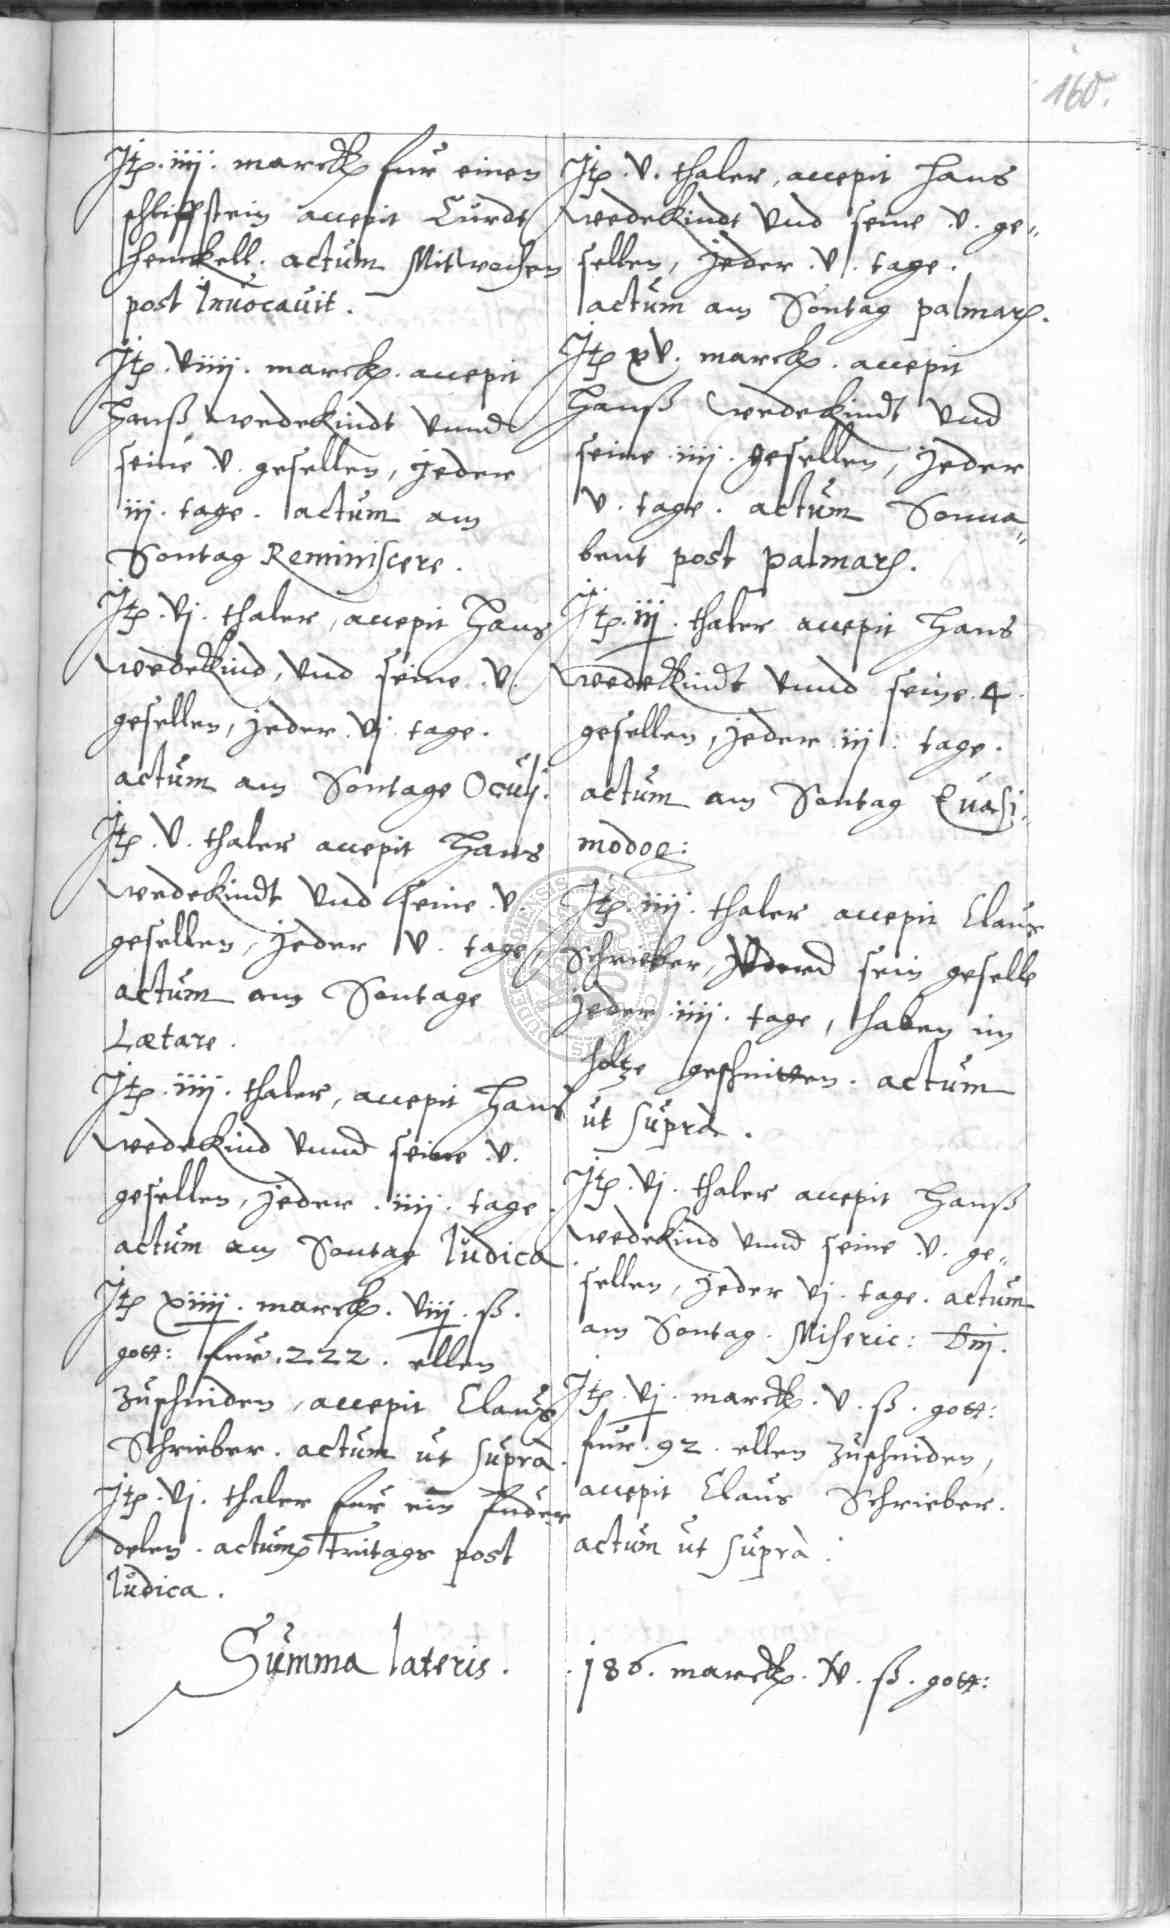 160.
Itē. iiij. marck fur einen
schliffstein accepit Curdt
Henckell. actum Mitwochen
post Inuocauit.
Itē. viiij. marck. accepit
Hanß wedekindt vnnd
seine v. gesellen, jeder
iij. tage. actum am
Sontag Reminiscere.
Itē. vj. thaler, accepit Hans
wedekind, vnd seine. v.
gesellen, jeder. vj. tage.
actum am Sontage Oculj.
Itē. v. thaler accepit Hans
wedekindt vnd seine. v.
gesellen, jeder v. tage,
actum am Sontage
Lætare.
Itē. iiij. thaler, accepit Hans
wedekind vnnd seine. v.
gesellen, jeder. iiij. tage.
actum am Sontag Iudica
Itē xiiij. marck. viij. ß.
gott: fur. 222. ellen
zuschniden, accepit Claus
Schrieber. actum ut suprà.
Itē. vj. thaler fur ein fuder
delen. actum Fritags post
Iudica.
Itē. v. thaler, accepit Hans
wedekindt vnd seine. v. ge„
sellen, jeder. v. tage.
actum am Sontag palmarʒ.
Itē xv. marck. accepit
Hanß wedekindt vnd
seine. iiij. gesellen, jeder
v. tage. actum Sonna„
bent post palmarʒ.
Itē. iij. thaler accepit Hans
wedekindt vnnd seine. 4.
gesellen, jeder iij. tage.
actum am Sontag Quasi„
modog:
Itē. iiij. thaler accepit Claus
Schrieber, vnnd sein geselle
jeder. iiij. tage, haben im
holtze geschnitten. actum
ut suprà.
Itē. vj. thaler accepit Hanß
wedekind vnnd seine. v. ge„
sellen, jeder vj. tage. actum
am Sontag. Miseric: Dnj.
Itē. vj. marck. v. ß. gott:
fur. 92. ellen zuschniden,
accepit Claus Schrieber.
actum ut suprà.
Summa lateris. 186. marck. iv. ß. gott: